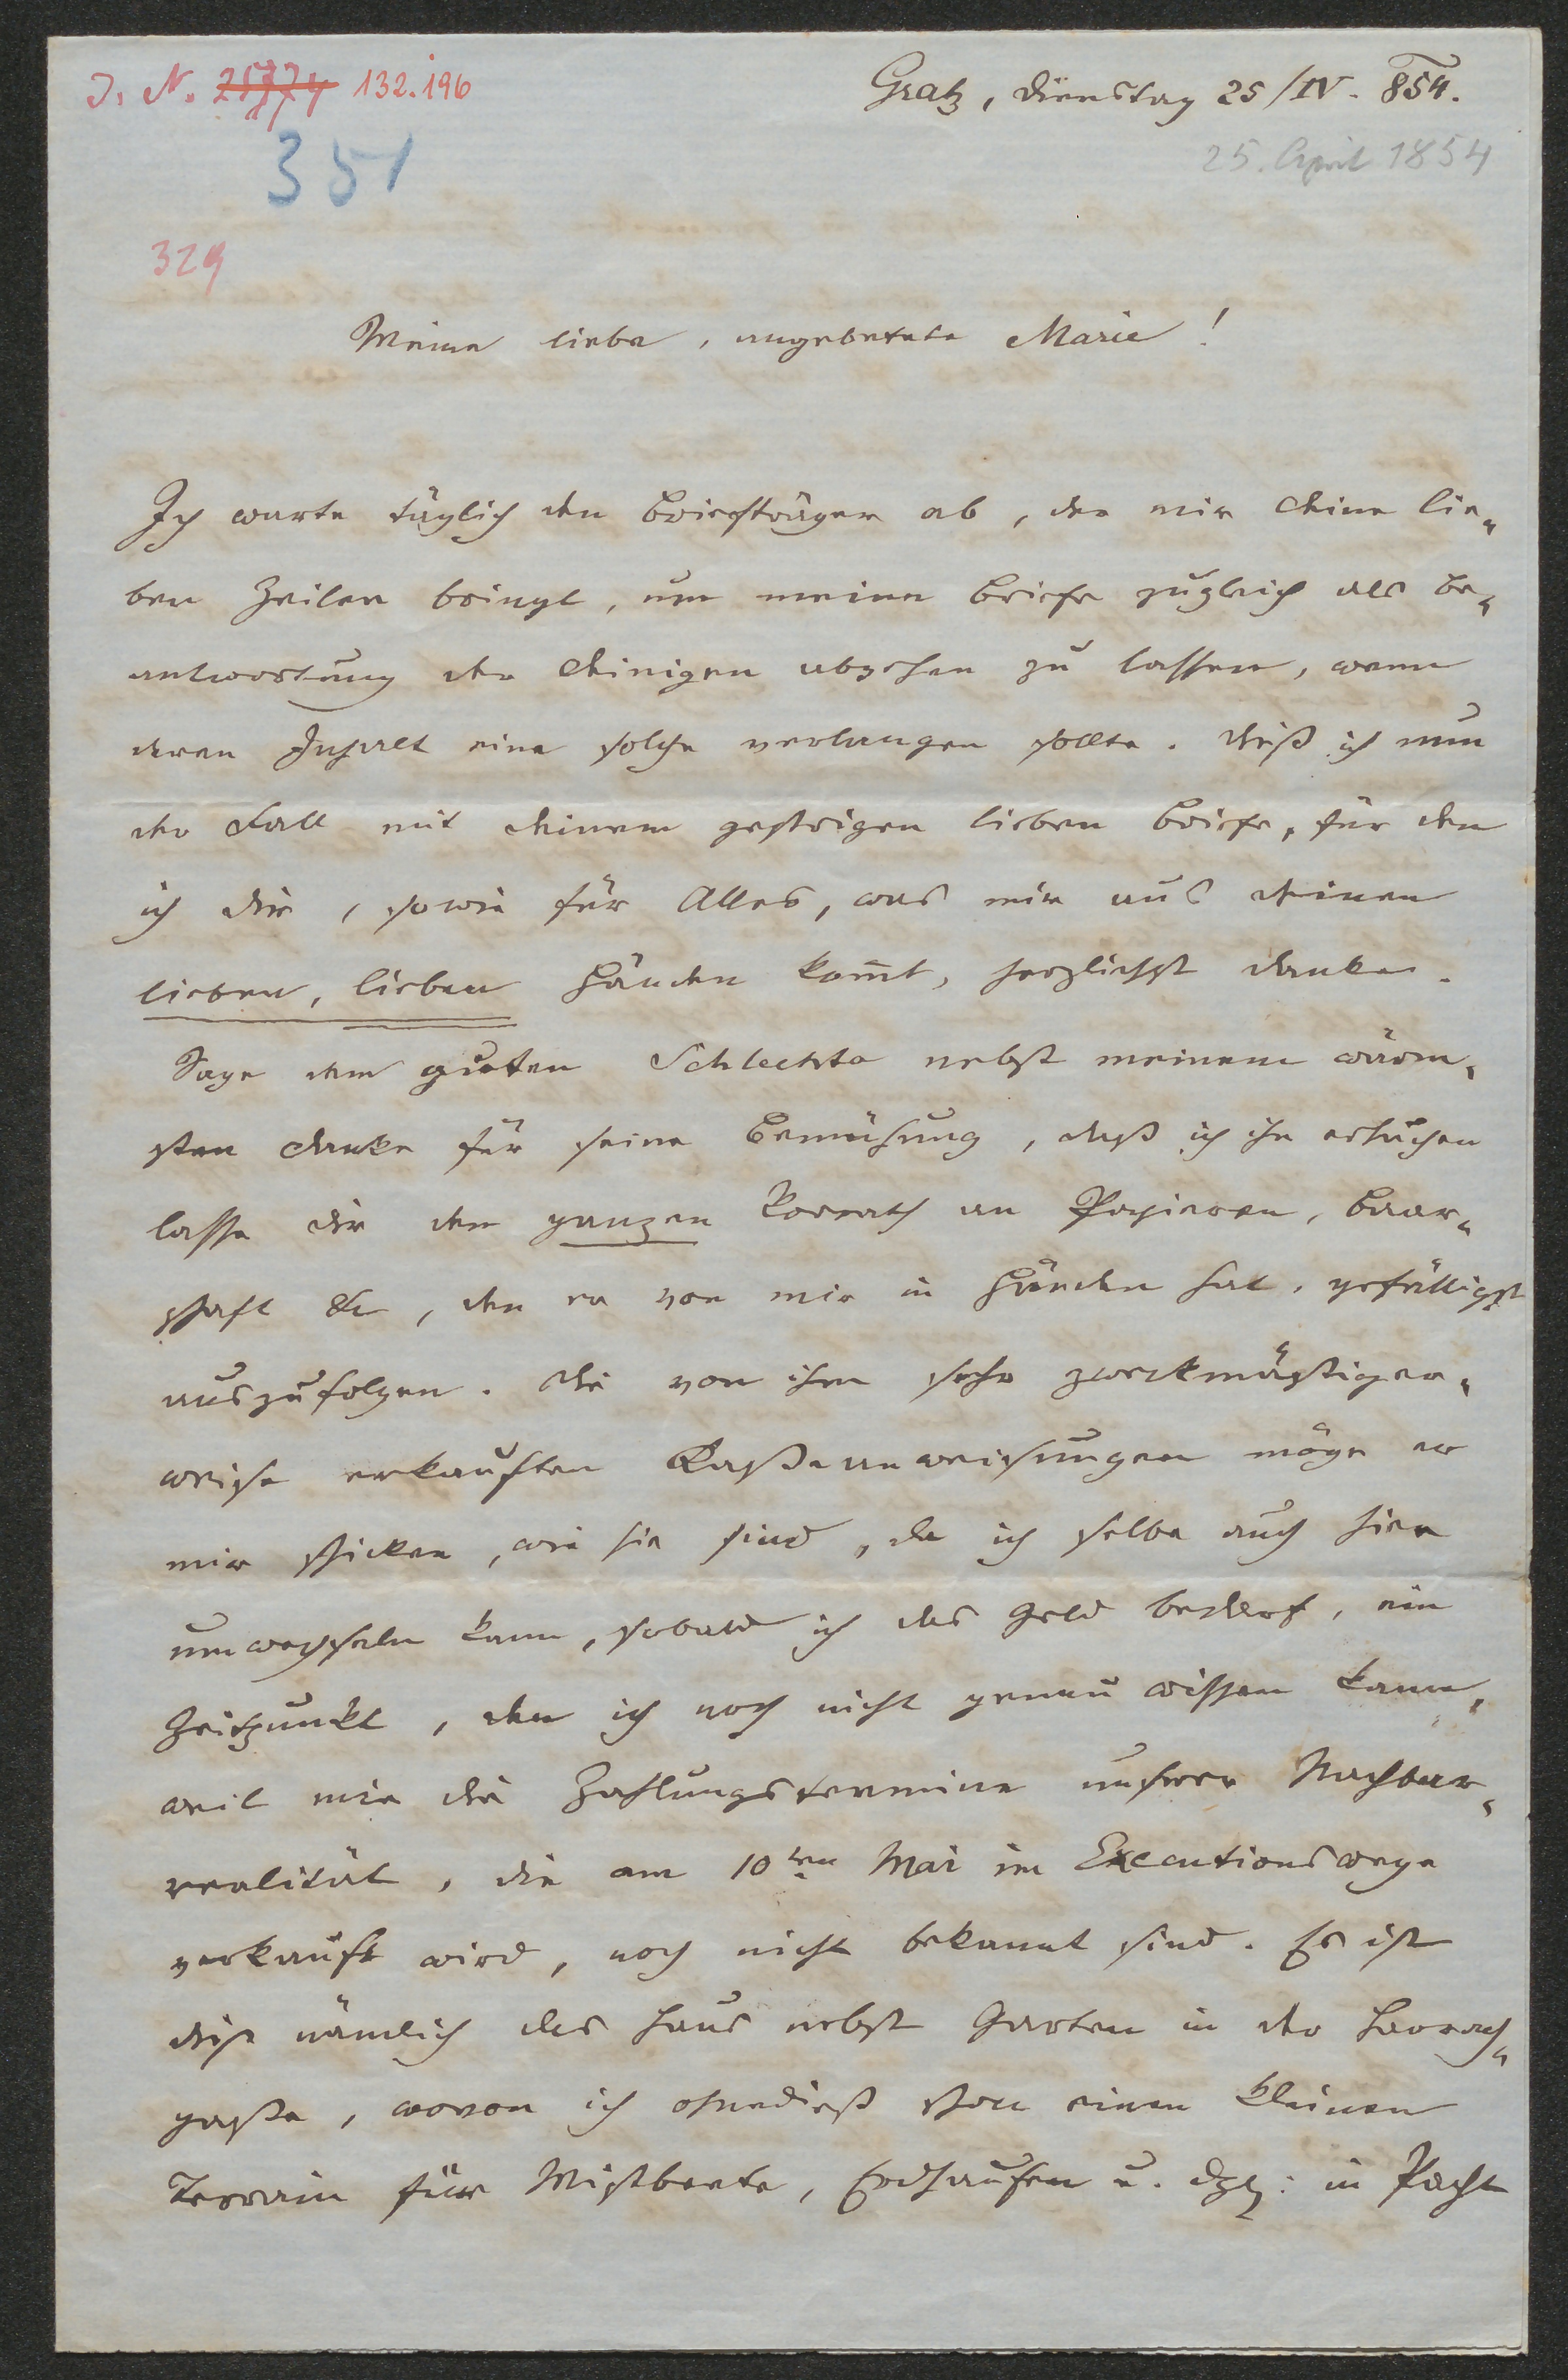 J. N. 25774 132.196
Gratz, Dienstag 25/IV. 854.
351
25. April 1854
329
Meine liebe, angebetete Marie!
Ich warte täglich den Briefträger ab, der mir Deine lie-
ben Zeilen bringt, um meine Briefe zugleich als Be-
antwortung der Deinigen abgehen zu lassen, wenn
deren Inhalt eine solche verlangen sollte. Dieß ist nun
der Fall mit Deinem gestrigen lieben Briefe, für den
ich Dir, sowie für Alles, was mir aus Deinen
lieben, lieben Händen kom̅t, herzlichst danke.
Sage dem guten Schlechta nebst meinem wärm-
sten Danke für seine Bemühung, daß ich ihn ersuchen
lasse Dir den ganzen Vorrath an Papieren, Baar-
schaft &c, den er von mir in Händen hat, gefälligst
auszufolgen. Die von ihm sehr zweckmäßiger-
weise erkauften Kaßeanweisungen möge er
mir schicken, wie sie sind, da ich selbe auch hier
umwechseln kann, sobald ich das Geld bedarf, ein
Zeitpunkt, den ich noch nicht genau wissen kann,
weil mir die Zahlungstermine unserer Nachbar-
realität, die am 10ten Mai im Executionswege
verkauft wird, noch nicht bekannt sind. Es ist
dieß nämlich das Haus nebst Garten in der Harrach-
gaße, wovon ich ohnedieß schon einen kleinen
Terrain für Mistbeete, Erdhaufen u. dgl: in Pacht